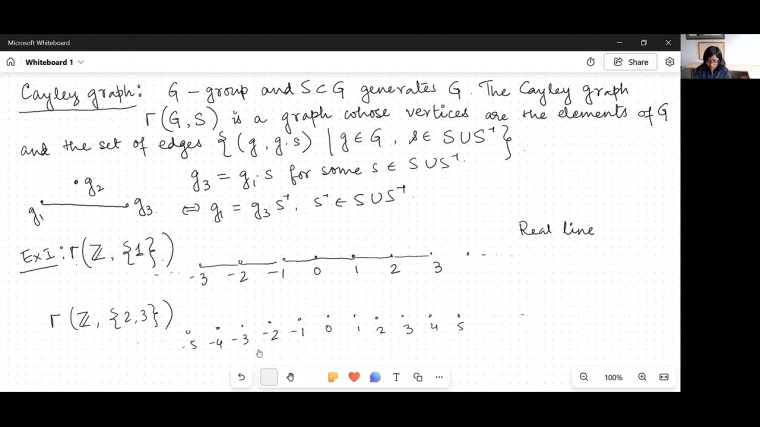 Microsoft Whiteboard
Whiteboard 1
Share
Cayley graph: G - group and S ⊂ G generates G. The Cayley graph
Γ(G, S) is a graph whose vertices are the elements of G
and the set of edges {(g, g·s) | g ∈ G, s ∈ S ∪ S⁻¹}.
g₃ = g₁·s for some s ∈ S ∪ S⁻¹.
⇔ g₁ = g₃ s⁻¹, s⁻¹ ∈ S ∪ S⁻¹.
g₂
g₁ g₃
Real line
Ex I: Γ(ℤ, {1})
-3 -2 -1 0 1 2 3
Γ(ℤ, {2,3})
-5 -4 -3 -2 -1 0 1 2 3 4 5
T
100%